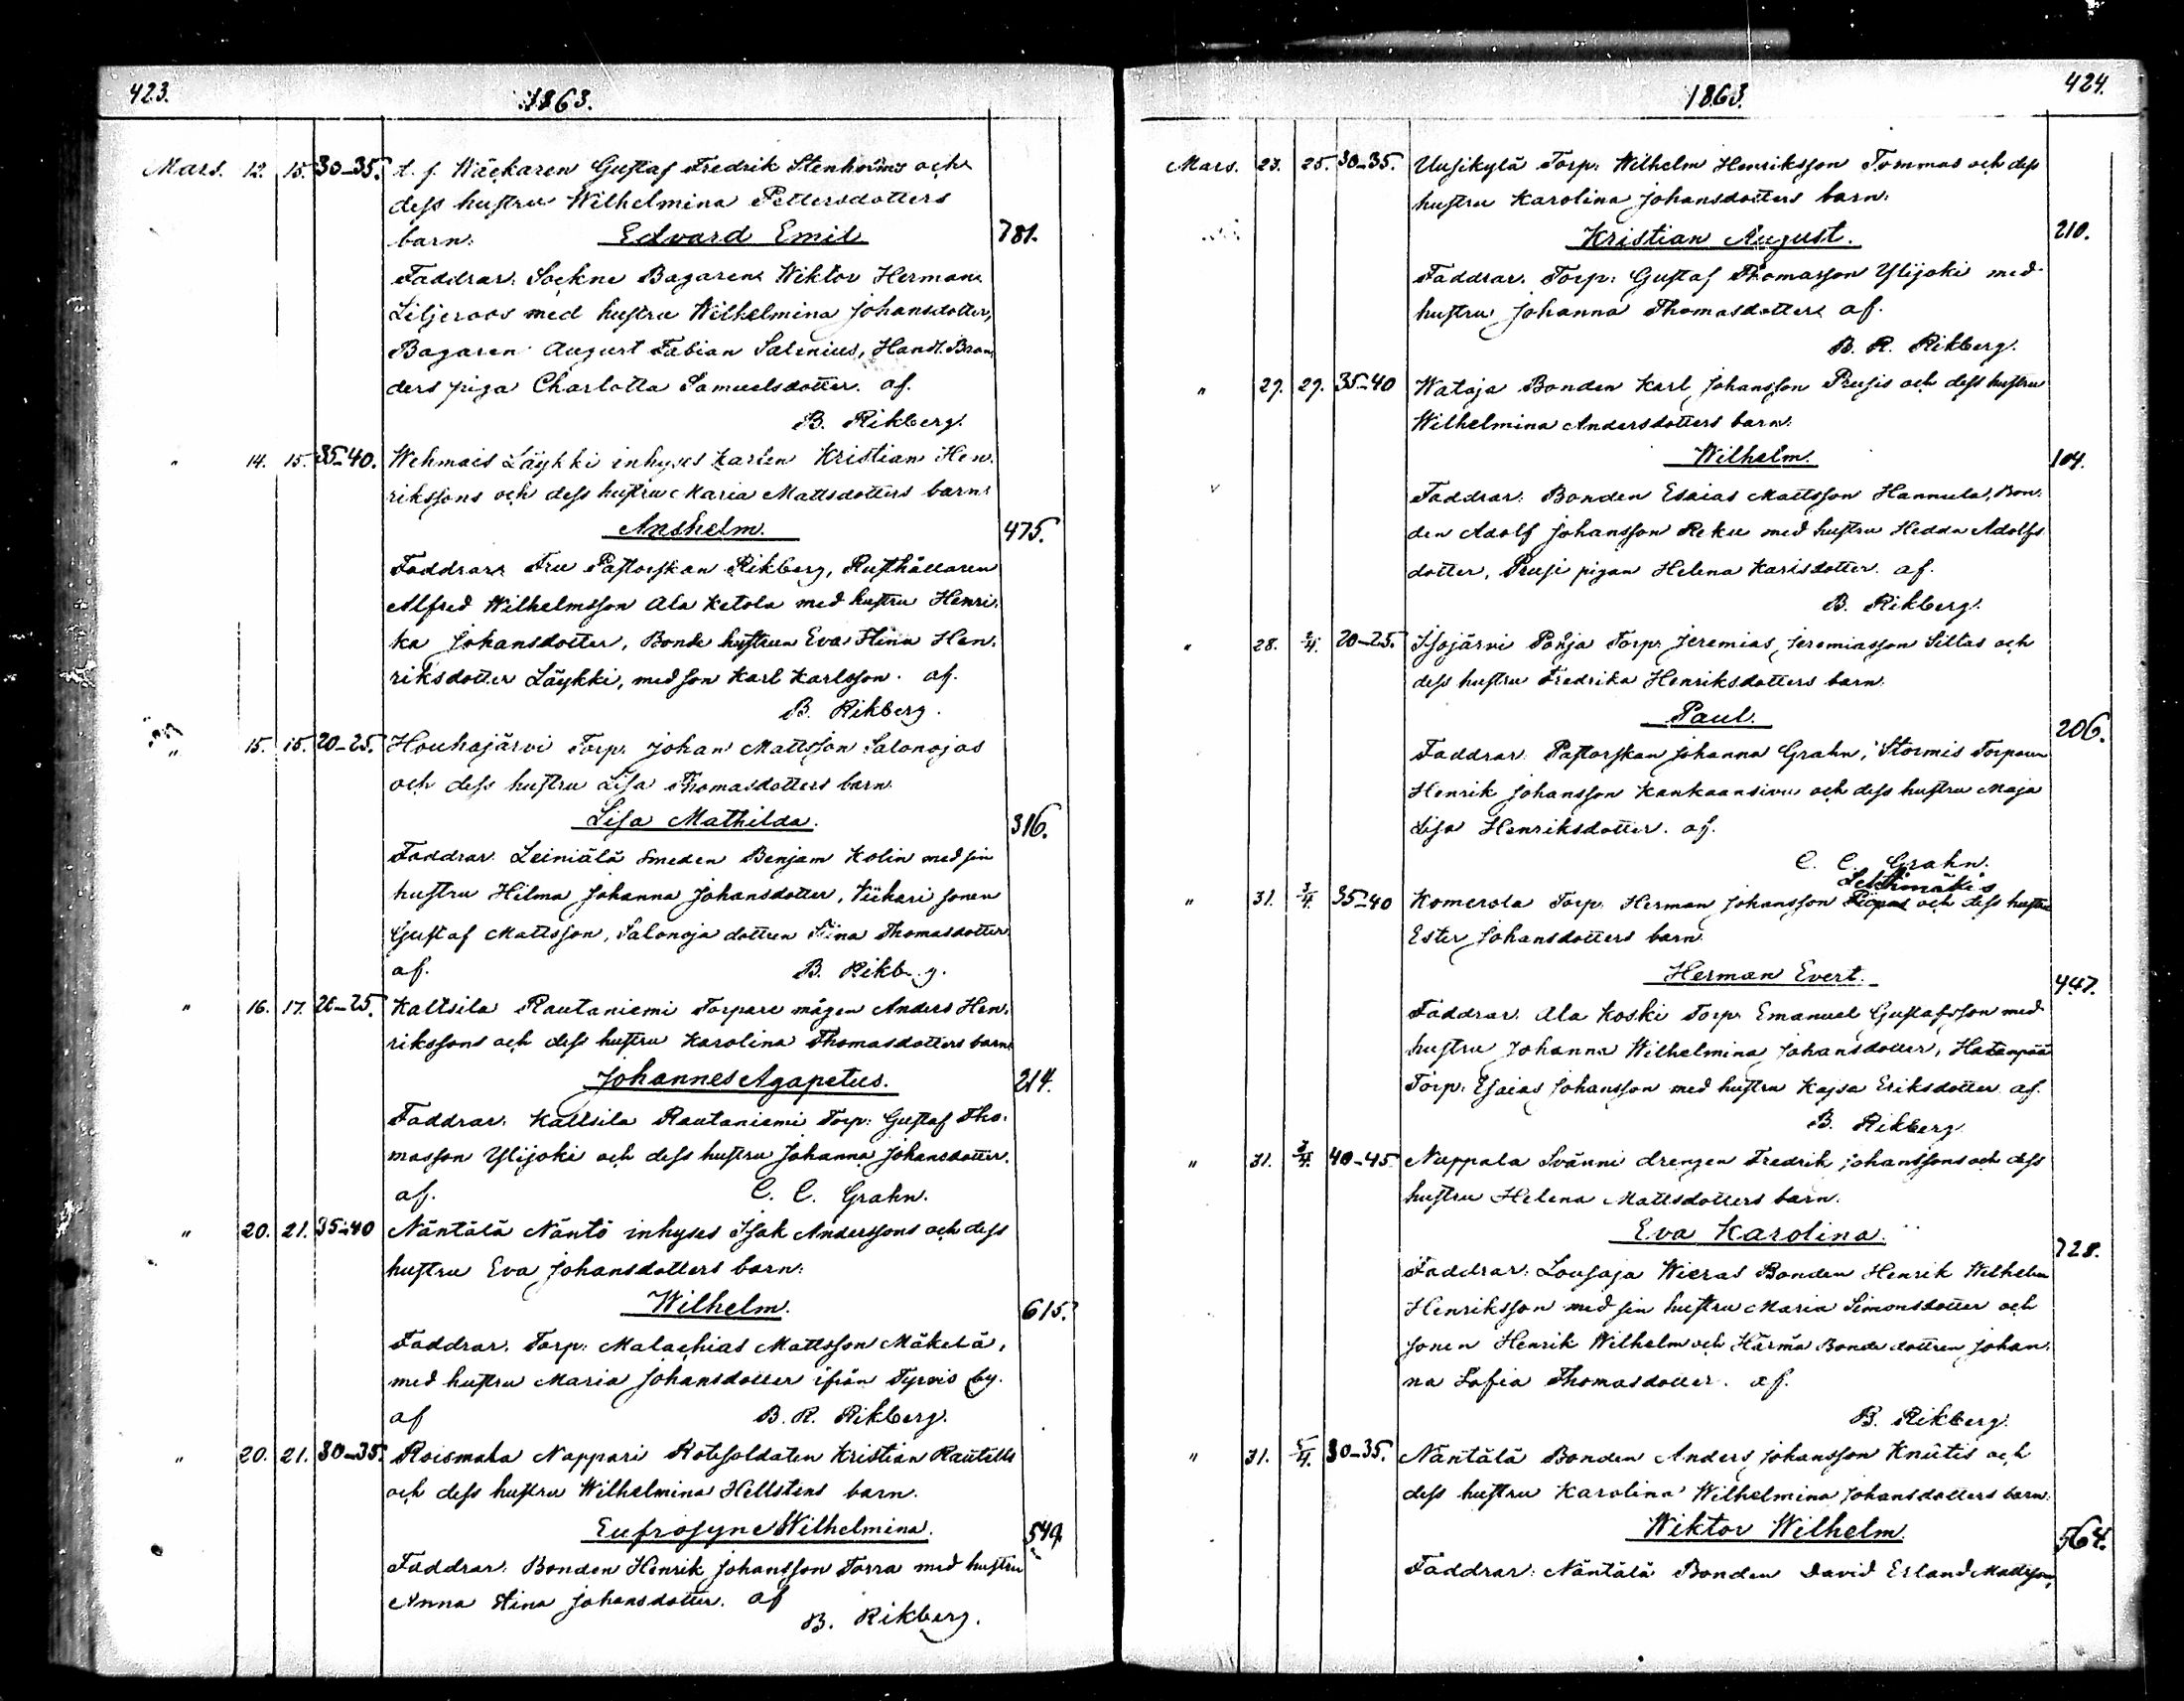 423.
1863.
Mars. 12. 15. 30-35. t. f. Wäckaren Gustaf Fredrik Stenholms och
dess hustru Wilhelmina Pettersdotters
barn: Edvard Emil 781.
Faddrar: Sockne Bagaren Wiktor Herman
Liljeroos med hustru Wilhelmina Johansdotter,
Bagaren August Fabian Salenius, Handl. Bran-
ders piga Charlotta Samuelsdotter. af.
B. Rikberg.
" 14. 15. 35-40. Wehmais Läykki inhyses Karlen Kristian Hen-
rikssons och dess hustru Maria Mattsdotters barn:
Anshelm. 475.
Faddrar: Fru Pastorskan Rikberg, Rusthållaren
Alfred Wilhelmsson Ala Ketola med hustru Henri-
ka Johansdotter, Bonde hustrun Eva Stina Hen-
riksdotter Läykki, med son Karl Karlsson. af.
B. Rikberg.
" 15. 15. 20-25. Houhajärvi Torp. Johan Mattsson Salonojas
och dess hustru Lisa Thomasdotters barn.
Lisa Mathilda. 316.
Faddrar. Leiniälä Smeden Benjam Kolin med sin
hustru Hilma Johanna Johansdotter, Wiikari sonen
Gustaf Mattsson, Salonoja dottren Stina Thomasdotter
af. B. Rikberg.
" 16. 17. 20-25. Kaltsila Rautaniemi Torpare mågen Anders Hen-
rikssons och dess hustru Karolina Thomasdotters barn:
Johannes Agapetus. 214.
Faddrar. Kaltsila Rautaniemi Torp: Gustaf Tho-
masson Ylijoki och dess hustru Johanna Johansdotter.
af. C. C. Grahn.
" 20. 21. 35-40 Näntälä Näntö inhyses Isak Anderssons och dess
hustru Eva Johansdotters barn:
Wilhelm. 615.
Faddrar. Torp: Malachias Mattsson Mäkelä,
med hustru Maria Johansdotter ifrån Tyrvis by.
af B. R. Rikberg.
" 20. 21. 30-35. Roismala Nappari Rotesoldaten Kristian Rautells
och dess hustru Wilhelmina Hellstens barn.
Eufrosyne Wilhelmina. 549.
Faddrar: Bonden Henrik Johansson Torra med hustru
Anna Stina Johansdotter. af
B. Rikberg.
424.
1863.
Mars. 23. 25. 30-35. Uusikylä Torp: Wilhelm Henriksson Tommas och dess
hustru Karolina Johansdotters barn:
Kristian August. 210.
Faddrar. Torp: Gustaf Thomasson Ylijoki med
hustru Johanna Thomasdotter af.
B. R. Rikberg.
" 29. 29. 35-40 Wataja Bonden Karl Johansson Prusis och dess hustru
Wilhelmina Andersdotters barn:
Wilhelm. 104.
Faddrar: Bonden Esaias Mattsson Hannula, Bon-
den Adolf Johansson Reku med hustru Hedda Adolfs
dotter, Prusi pigan Helena Karlsdotter. af.
B. Rikberg.
" 28. 2/4. 20-25. Isojärvi Pohja Torp: Jeremias Jeremiasson Siltas och
dess hustru Fredrika Henriksdotters barn.
Paul. 206.
Faddrar: Pastorskan Johanna Grahn, Stormis Torparen
Henrik Johansson Kankaansivu och dess hustru Maja
Lisa Henriksdotter. af.
C. C. Grahn.
Lehtimäkis
" 31. 3/4. 35-40 Komerola Torp. Herman Johansson och dess hustru
Ester Johansdotters barn.
Herman Evert. 447.
Faddrar. Ala Koski Torp: Emanuel Gustafsson med
hustru Johanna Wilhelmina Johansdotter, Hatanpää
Torp: Esaias Johansson med hustru Kajsa Eriksdotter. af.
B. Rikberg
" 31. 3/4. 40-45 Nuppala Svänni drengen Fredrik Johanssons och dess
hustru Helena Mattsdotters barn.
Eva Karolina. 728.
Faddrar: Lousaja Wieras Bonden Henrik Wilhelm
Henriksson med sin hustru Maria Simonsdotter och
sonen Henrik Wilhelm och Härmä Bonde dottren Johan-
na Sofia Thomasdotter. af.
B. Rikberg.
" 31. 5/4. 30-35. Näntälä Bonden Anders Johansson Knutis och
dess hustru Karolina Wilhelmina Johansdotters barn:
Wiktor Wilhelm. 564.
Faddrar: Näntälä Bonden David Erland Mattsson,